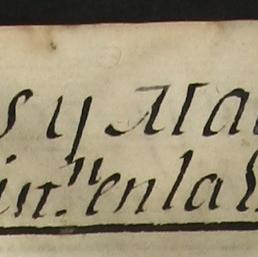 s y Ma
int.n en la